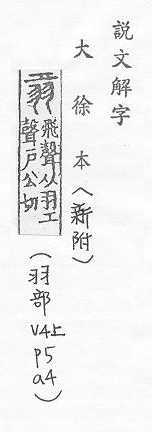 説文解字
大徐本（新附）
飛聲从羽工
聲戶公切
（羽部
V4上
P5
a4）